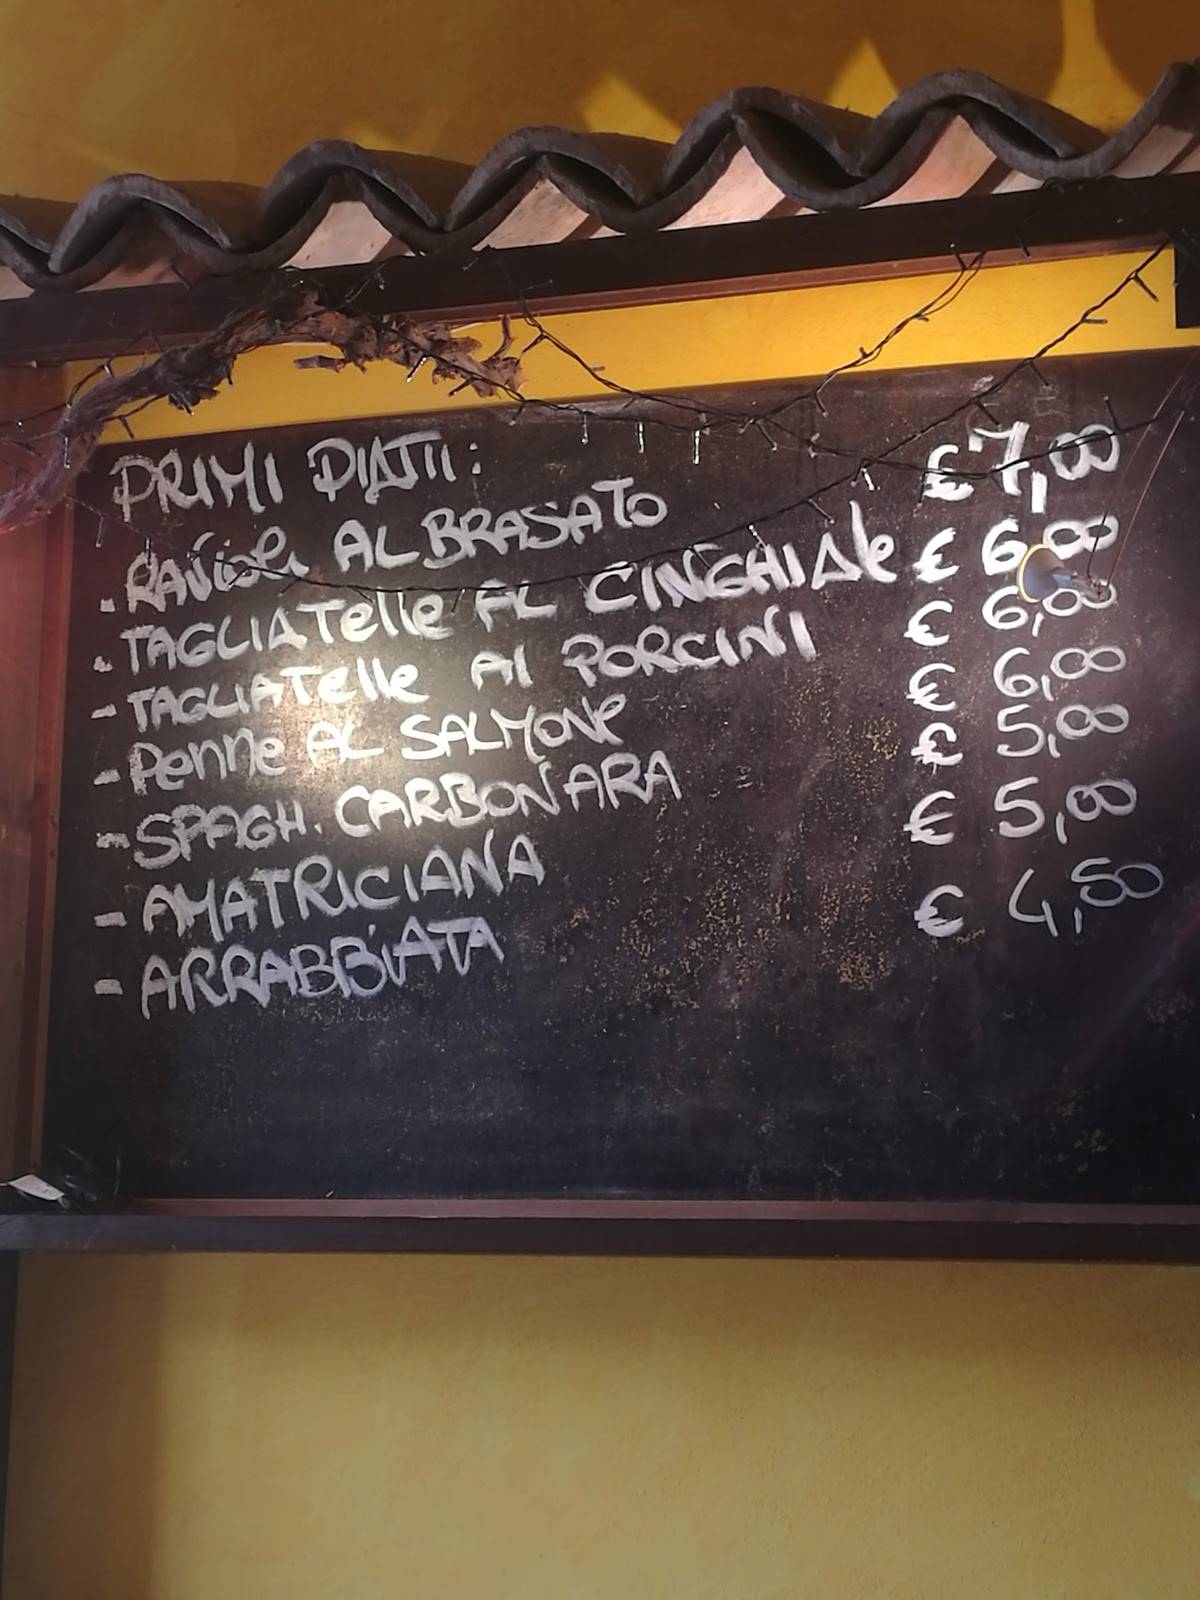 PRIMI PIATTI:
. RAVIOLI AL BRASATO € 7,00
. TAGLIATelle AL CINGHIALe € 6,00
- TAGLIATelle AI PORCINI € 6,00
- Penne AL SALMONe € 6,00
- SPAGH. CARBONARA € 5,00
- AMATRICIANA € 5,00
- ARRABBiATA € 4,50